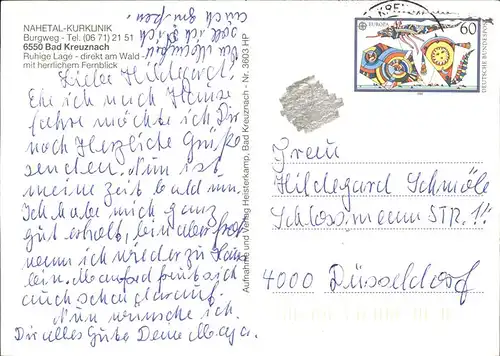 NAHETAL-KURKLINIK
Burgweg - Tel. (06 71) 21 51
6550 Bad Kreuznach
Ruhige Lage - direkt am Wald -
mit herrlichem Fernblick
Liebe Hildegard!
Ehe ich nach Hause
fahre möchte ich Dir
noch Herzliche Grüße
senden. Nun ist
meine Zeit bald um.
Ich habe mich ganz
gut erholt, bin aber froh
wenn ich wieder zu Hause
bin. Manfred freut sich
auch schon darauf.
Nun wünsche ich
Dir alles Gute Deine Maja.
soll ich Dich
auch grüßen
Aufnahme und Verlag Heisterkamp, Bad Kreuznach - Nr. 3603 HP
KREUZ
EUROPA
60
DEUTSCHE BUNDESPOST
Frau
Hildegard Schmöle
Schlossmann STR. 11
4000 Düsseldorf